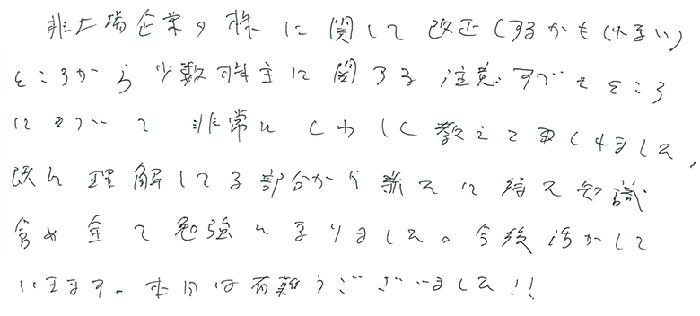 非上場企業の株に関して改正するかもしれない
ところから少数株主に関する注意すべきところ
について非常にくわしく教えて頂くれました、
既に理解してる部分から新たに得た知識
含め全て勉強になりました。今後活かして
いきます。本日は有難うございました!!